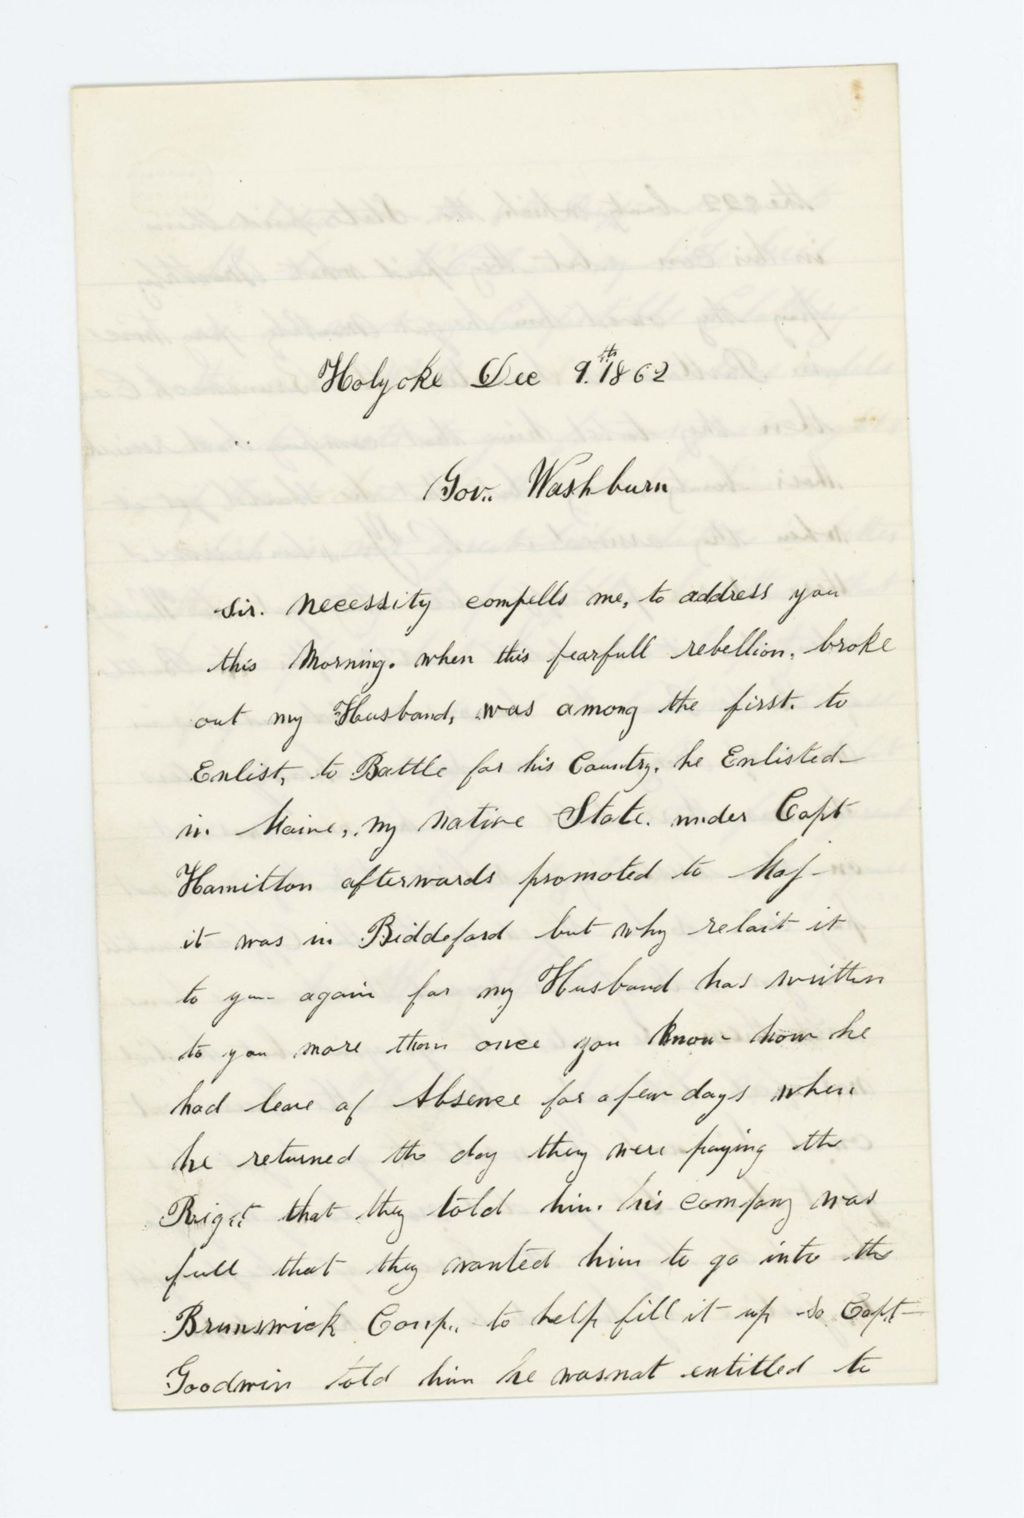 Holyoke Dec 9.th 1862
Gov.. Washburn
Sir. Necessity compells me, to address you
this Morning. when this fearfull rebellion, broke
out my Husband, was among the first. to
Enlist, to Battle for his Country, he Enlisted
in. Maine,. my native State. under Capt
Hamilton afterwards promoted to Maj-
it was in Biddeford but why relait it
to you again for my Husband has written
to you more than once you know how he
had leave of Absence for a few days when
he returned the day they were paying the
Rigt that they told him. his company was
full that they wanted him to go into the
Brunswick Comp.. to help fill it up so Capt
Goodwin told him he was not entitled to